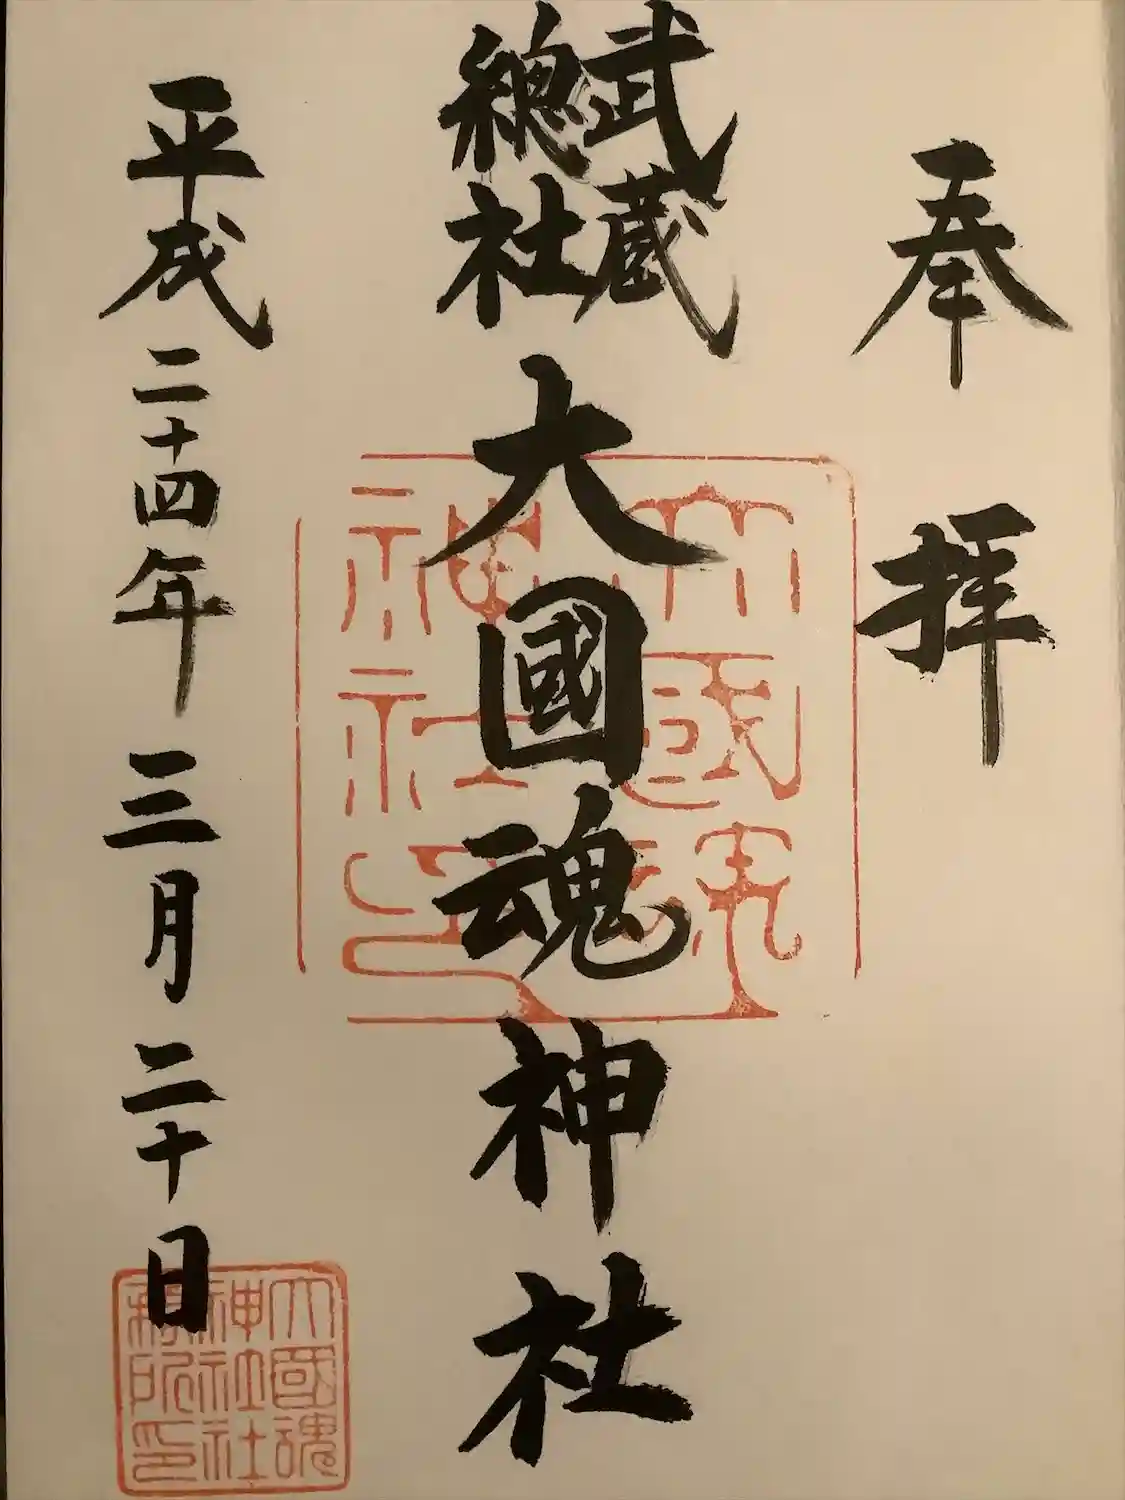 奉拝
武蔵
總社
大國魂神社
平成二十四年三月二十日
大國魂
神社印
大國魂
神社社
務所印